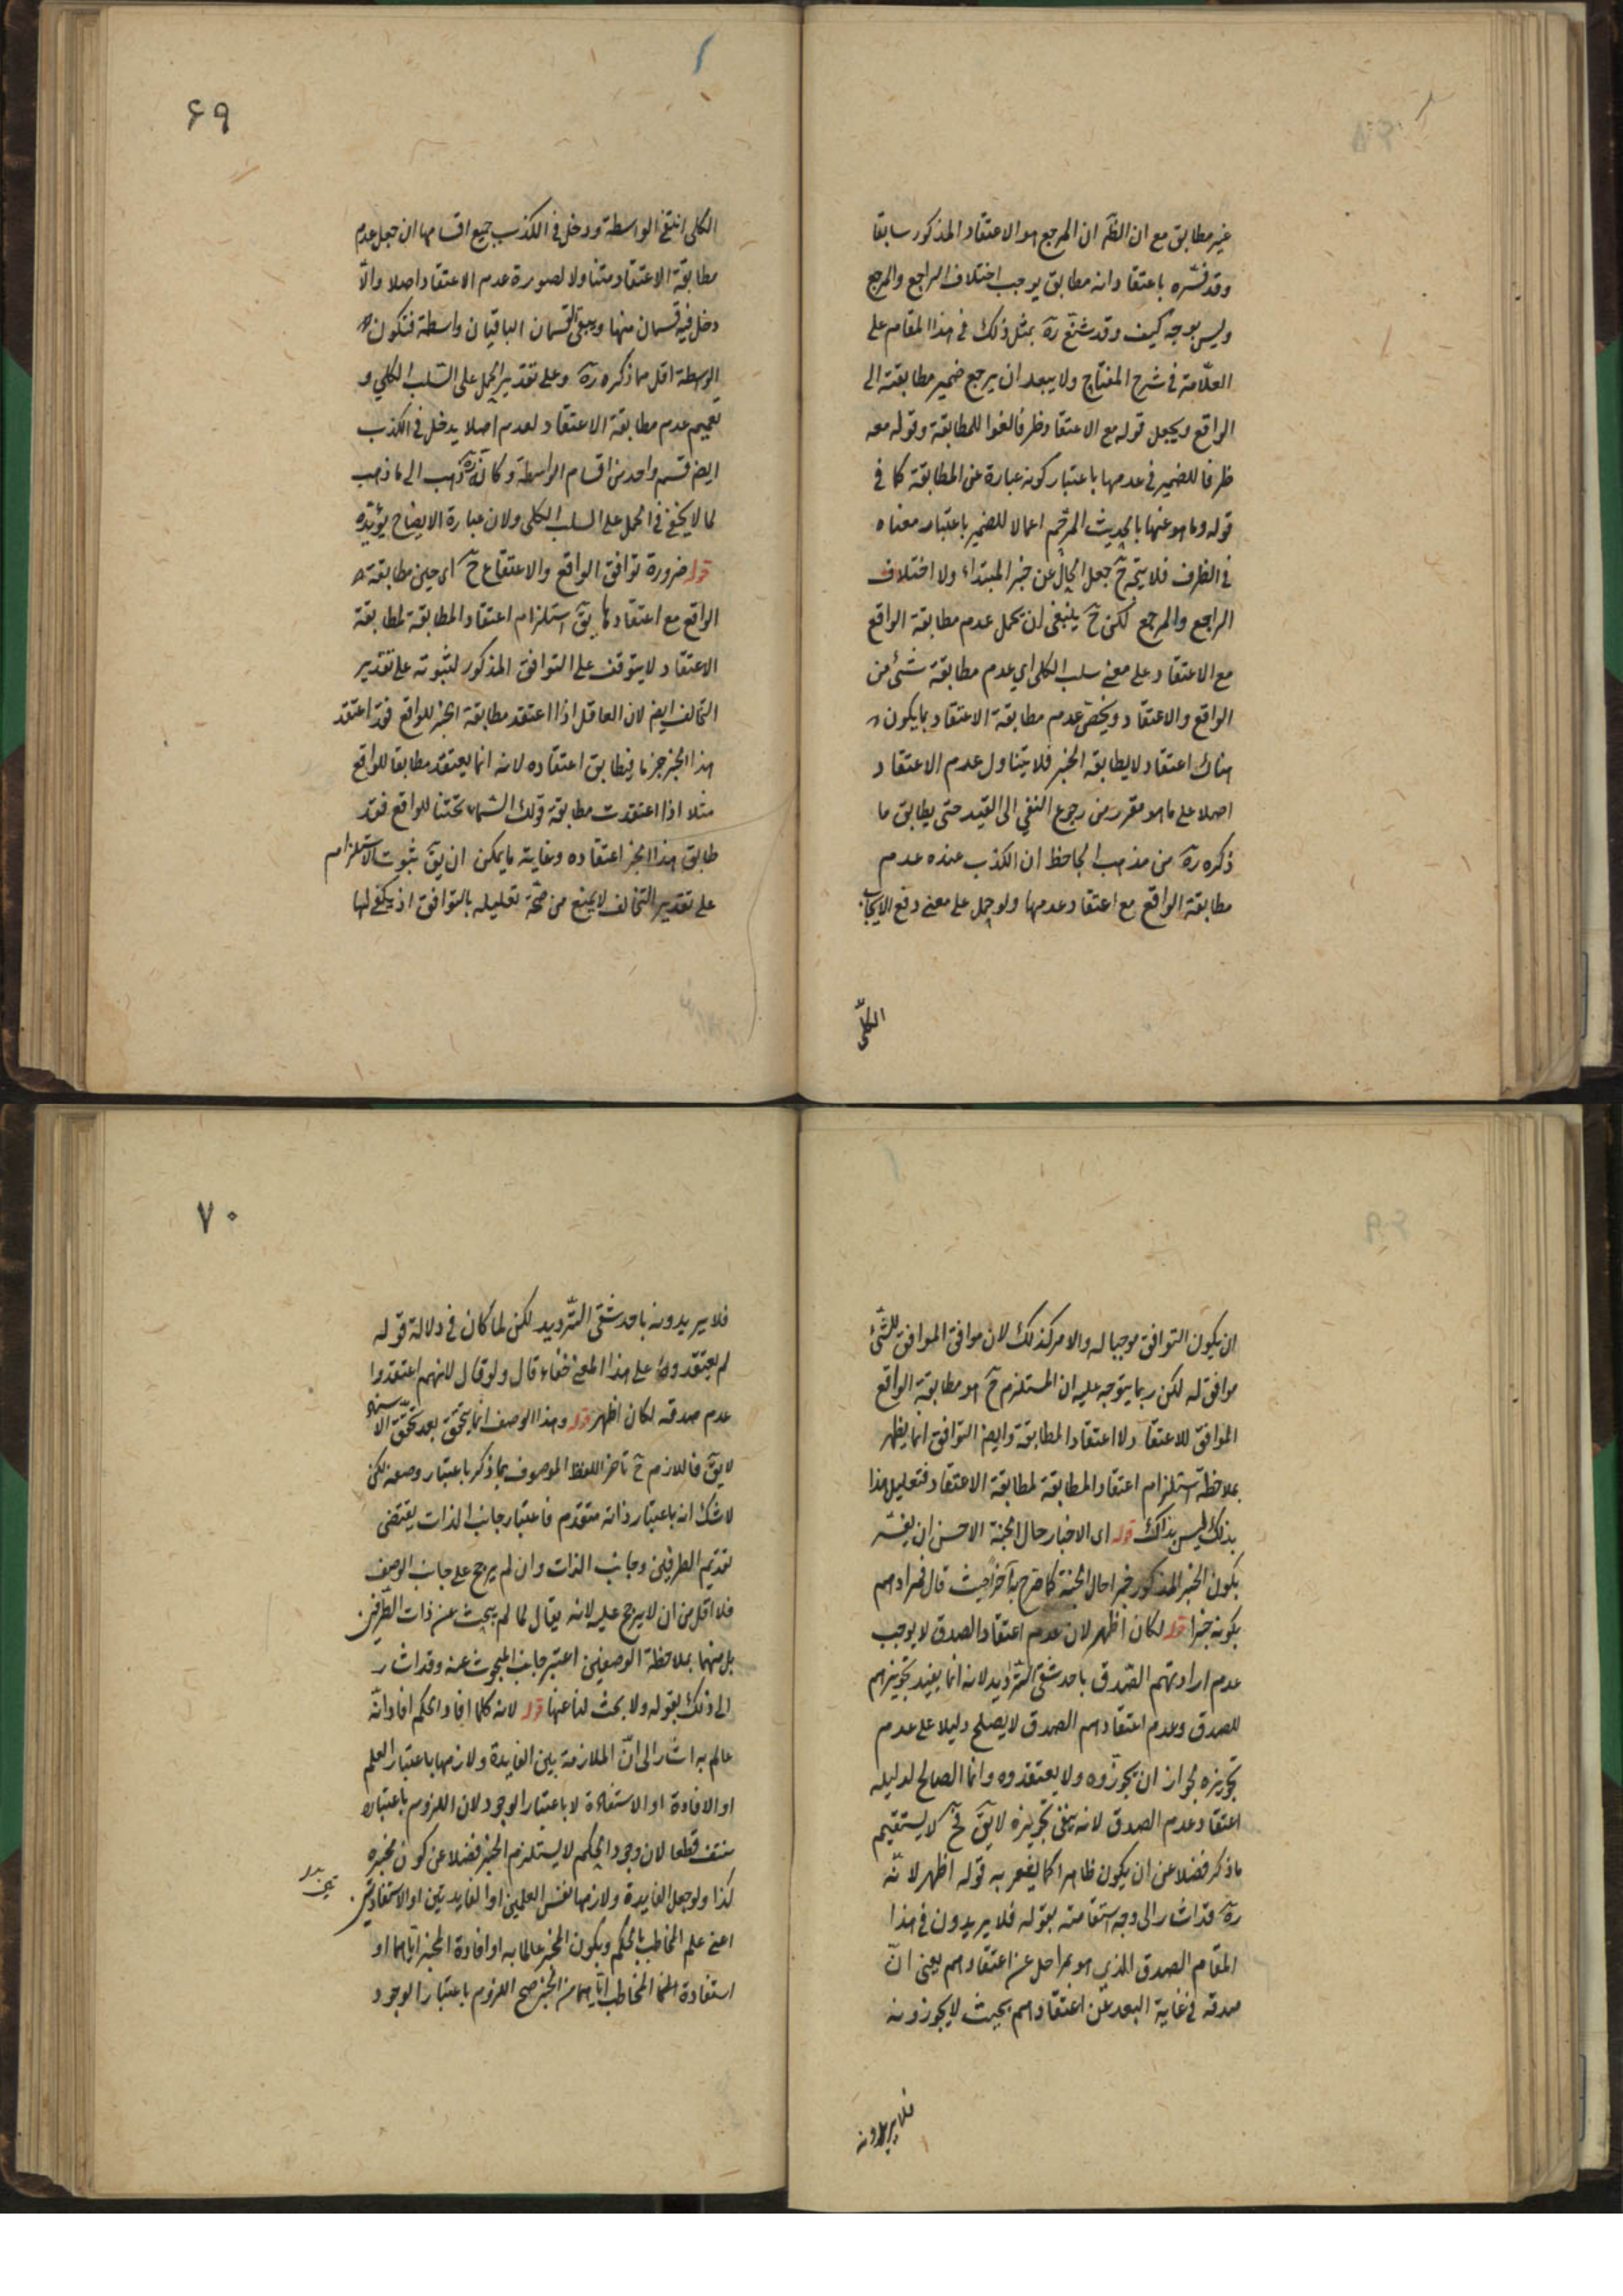 غير مطابق مع ان الظ ان المرجع هو الاعتقاد المذكور سابقا
وقد فسّره باعتقاد انه مطابق يوجب اختلاف الراجع والمرجع
وليس بوجه كيف وقد شنّع ره بمثل ذلك في هذا المقام على
العلّامة في شرح المفتاح ولا يبعد ان يرجع ضمير مطابقته الى
الواقع ويجعل قوله مع الاعتقاد ظرفا لغوا للمطابقة وقوله معه
ظرفا للضمير في عدمها باعتبار كونه عبارة عن المطابقة كما في
قوله وما هو عنها بالحديث المرجّم اعمالا للضمير باعتبار معناه
في الظرف فلا يتجه ح جعل الحال عن خبر المبتداء ولا اختلاف
الراجع والمرجع لكن ح ينبغي ان يحمل عدم مطابقة الواقع
مع الاعتقاد على معنى سلب الكلى اي عدم مطابقة شئ من
الواقع والاعتقاد ويخصّ عدم مطابقة الاعتقاد بما يكون
هناك اعتقاد لا يطابقه الخبر فلا يتناول عدم الاعتقاد
اصلا على ما هو مقرر من رجوع النفي الى القيد حتى يطابق ما
ذكره ره من مذهب الجاحظ ان الكذب عنده عدم
مطابقة الواقع مع اعتقاد عدمها ولو حمل على معنى رفع الايجاب
الكلّى
۶۹
الكلى انتفى الواسطة ودخل في الكذب جميع اقسامها ان جعل عدم
مطابقة الاعتقاد متناولا لصورة عدم الاعتقاد اصلا والّا
دخل فيه قسمان منها ويبقى القسمان الباقيان واسطة فتكون
الواسطة اقل مما ذكره ره وعلى تقدير الحمل على السّلب الكلي و
تعميم عدم مطابقة الاعتقاد لعدم اصلا يدخل في الكذب
ايض قسم واحد من اقسام الواسطة وكانّه ره ذهب الى ما ذهب
لما لا يخفى في الحمل على السلب الكلى ولان عبارة الايضاح يؤيّده
قوله ضرورة توافق الواقع والاعتقاع ح اى حين مطابقة
الواقع مع اعتقادها يقَ استلزام اعتقاد المطابقة لمطابقة
الاعتقاد لا يتوقف على التوافق المذكور لثبوته على تقدير
التخالف ايض لان العاقل اذا اعتقد مطابقة الخبر للواقع فقد اعتقد
هذا الخبر جزما فيطابق اعتقاده لانه انما يعتقد مطابقا للواقع
مثلا اذا اعتقدت مطابقة قولك السّماء تحتنا للواقع فقد
طابق هذا الخبر اعتقاده وغاية ما يمكن ان يقَ ثبوت الاستلزام
على تقدير التخالف لا يمنع من صحّة تعليله بالتوافق اذ يكفى لها
ان يكون التوافق موجبا له والامر كذلك لان موافق الموافق للشّئ
موافق له لكن ربما يتوجه عليه ان المستلزم ح هو مطابقة الواقع
الموافق للاعتقاد لا اعتقاد المطابقة وايض التوافق انما يظهر
بملاحظة استلزام اعتقاد المطابقة لمطابقة الاعتقاد فتعليل هذا
بذلك ليس بذاك قوله اى الاخبار حال الجنة الاحسن ان يفسّر
بكون الخبر المذكور خبرا حال الجنة كما صرح به آخرا حيث قال فمرادهم
بكونه خبرا قوله لكان اظهر لان عدم اعتقاد الصدق لا يوجب
عدم ارادتهم الصّدق باحد شقى التّرديد لانه انما يفيد تجويزهم
للصدق وعدم اعتقادهم الصدق لا يصلح دليلا على عدم
تجويزه لجواز ان يجوّزوه ولا يعتقدوه وانما الصالح لدليله
اعتقاد عدم الصدق لانه ينفى تجويزه لا يقَ فح لا يستقيم
ما ذكر فضلا عن ان يكون ظاهرا كما يشعر به قوله اظهر لانّه
ره قد اشار الى وجه استقامته بقوله فلا يريدون في هذا
المقام الصدق الذي هو بمراحل عن اعتقادهم يعنى انّ
صدقه في غاية البعد عن اعتقادهم بحيث لا يجوزونه
فلا يريدونه
۷۰
فلا يريدونه باحد شقى التّرديد لكن لما كان في دلالة قوله
لم يعتقدوه على هذا المعنى خفاء قال ولو قال لانهم اعتقدوا
عدم صدقه لكان اظهر قوله وهذا الوصف انما يتحقق بعد تحقّق الاسناد
لا يقَ فاللازم ح تاخر اللفظ الموصوف بما ذكر باعتبار وصفه لكن
لا شك انه باعتبار ذاته متقدم فاعتبار جانب الذات يقتضى
تقديم الطرفين وجانب الذات وان لم يرجح على جانب الوصف
فلا اقل من ان لا يرجح عليه لانه يقال لما لم يبحث عن ذات الطرفين
بل عنهما بملاحظة الوصفين اعتبر جانب المبحوث عنه وقد اشار
الى ذلك بقوله ولا بحث لنا عنها قوله لانه كلما افاد الحكم افاد انّه
عالم به اشار الى انّ الملازمة بين الفايدة ولازمها باعتبار العلم
او الافادة او الاستفادة لا باعتبار الوجود لان اللزوم باعتباره
منتف قطعا لان وجود الحكم لا يستلزم الخبر فضلا عن كون مخبره
كذا ولو جعل الفايدة ولازمها نفس العلمين او الفايدتين او الاستفادتين
اعنى علم المخاطب بالحكم وبكون المخبر عالما به او افادة المخبر اياهما او
استفادة المخاطب اياهما من الخبر صح اللزوم باعتبار الوجود